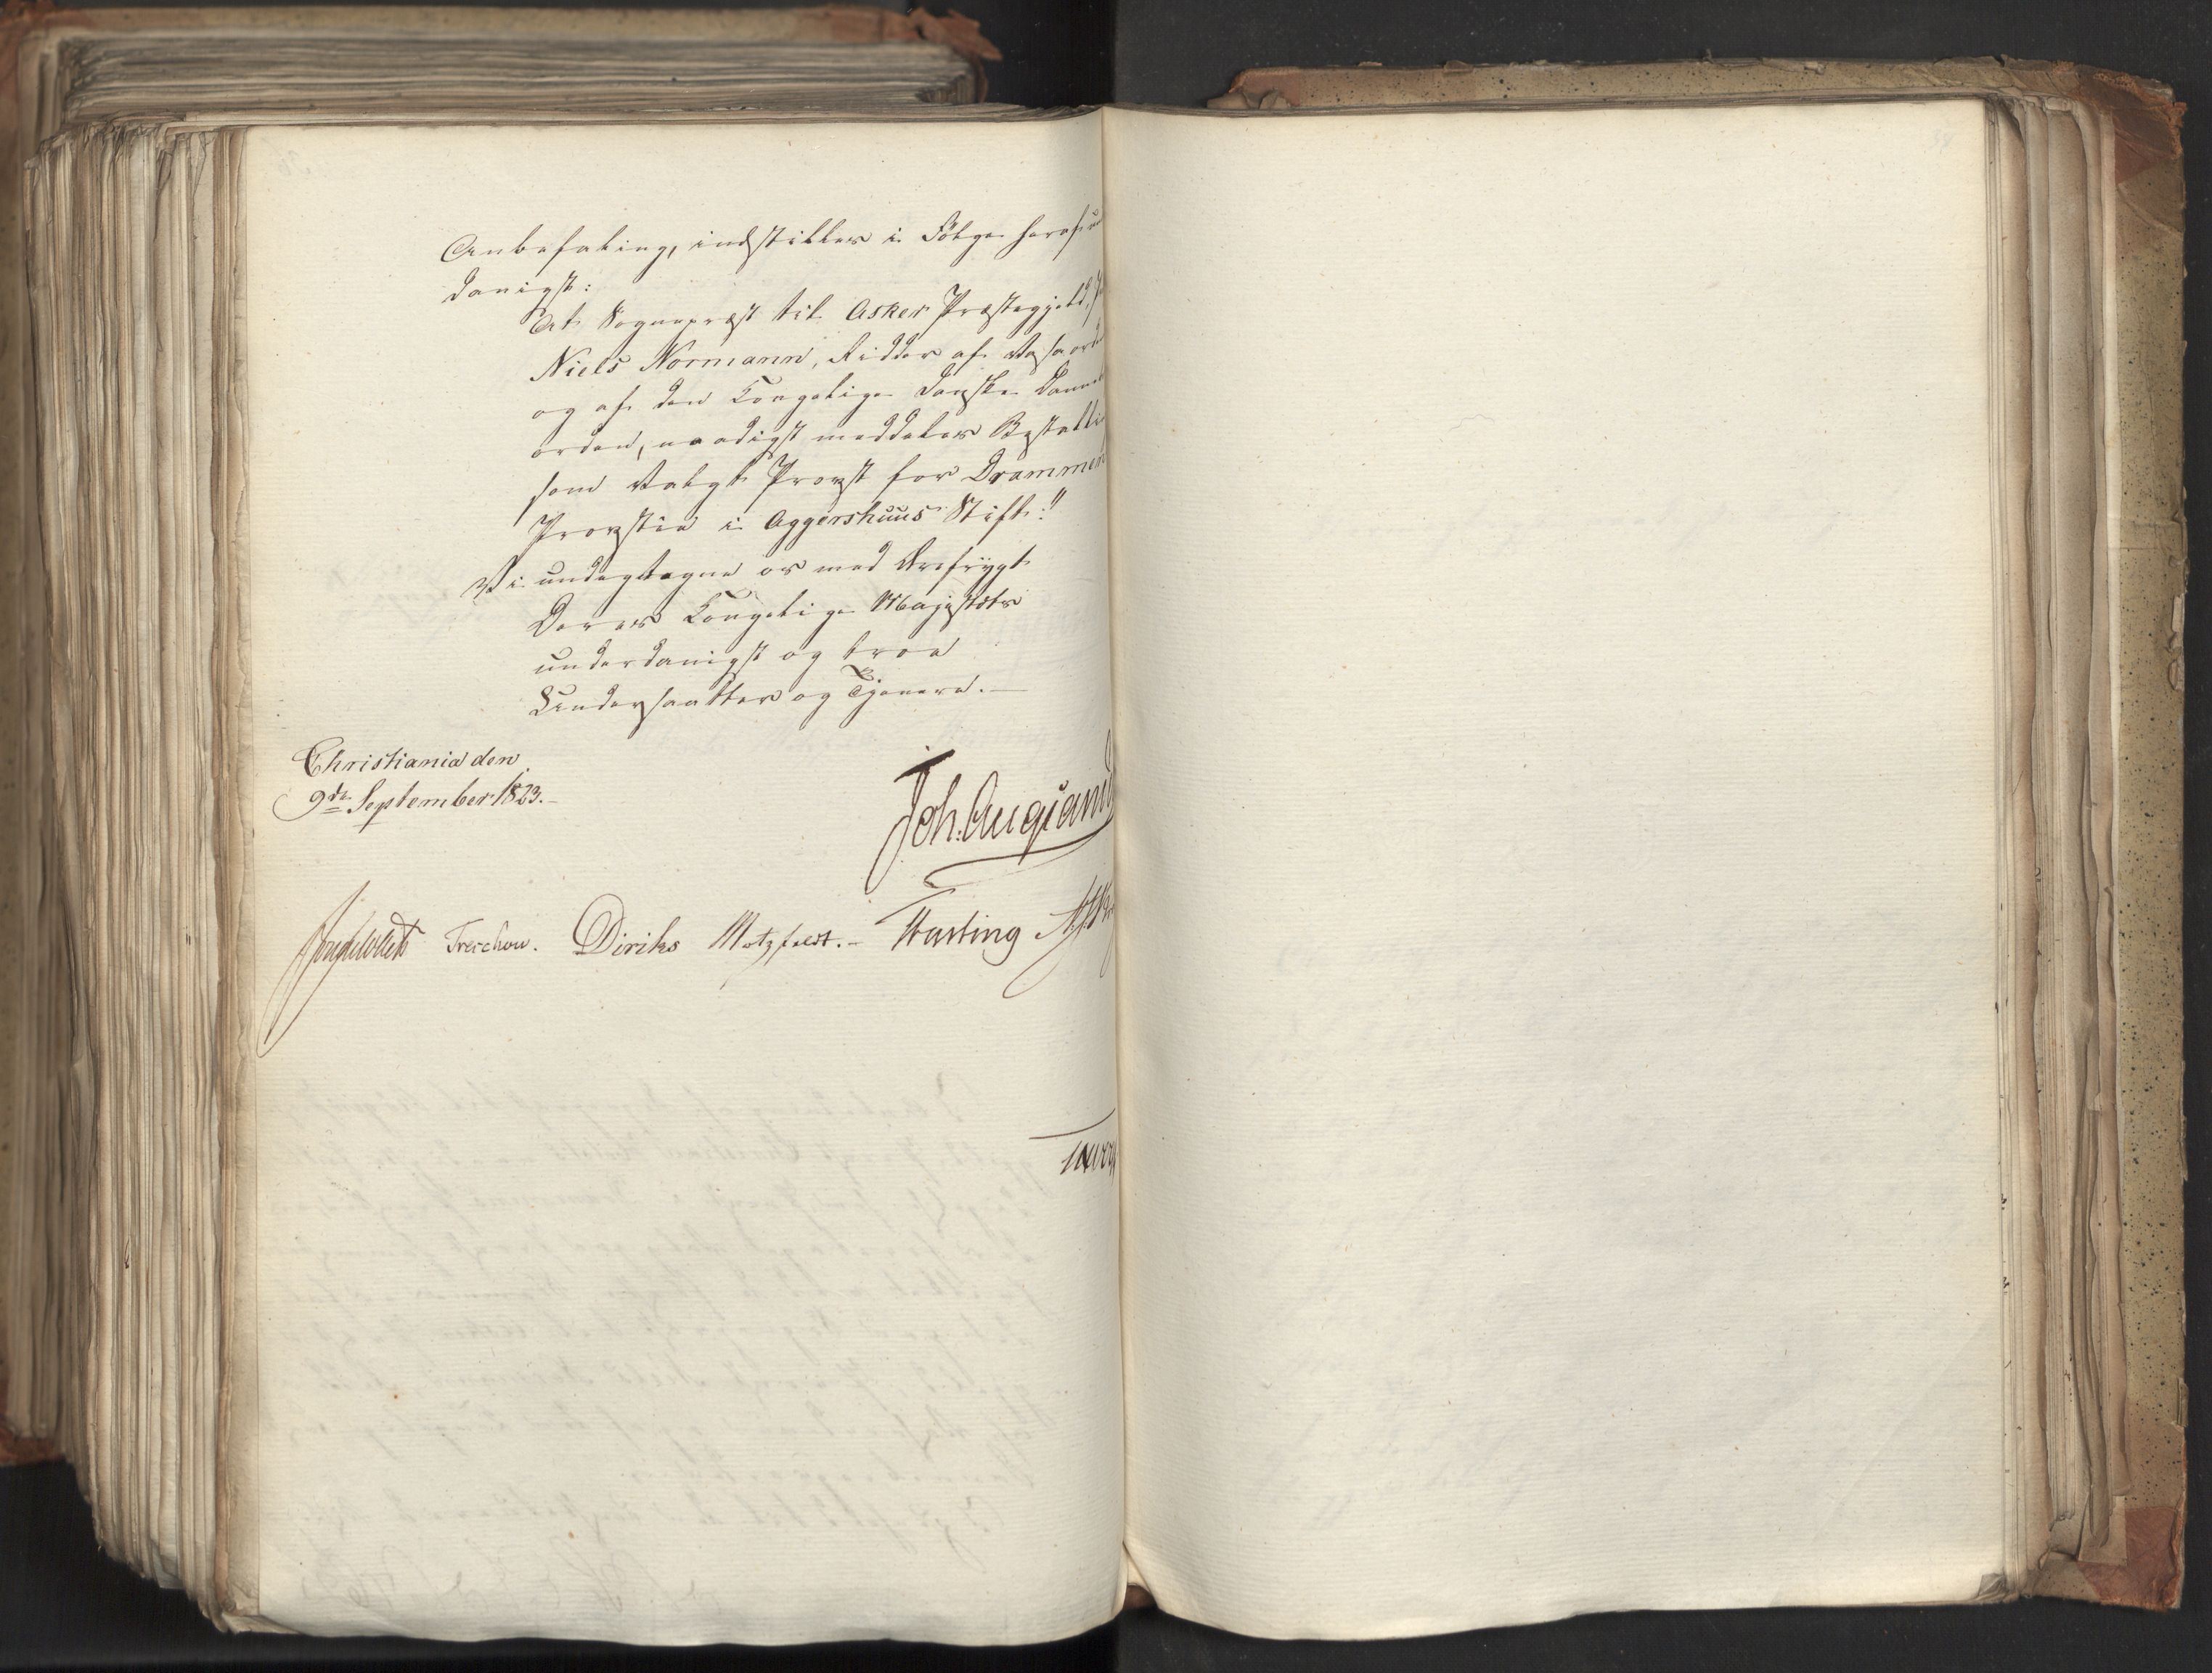 Anbefaling, indstilles i Følge heraf un
danigst:
At Sognepræst til Asker Præstegjeld,
Niels Normann, Ridder af Wasaorde
og af den Kongelige danske Danne
orden, naadigst meddeles Bestalli
som valgt Provst for Drammen
Provstie i Aggershuus Stift."
Vi undertegne os med Ærefrygt
Deres Kongelige Majestæts
underdanigst og troe
Undersaatter og Tjenere.—
Christiania den
9de September 1823.—
Joh. Aug: Sand
Treschow. Diriks Motzfeldt.— Fasting